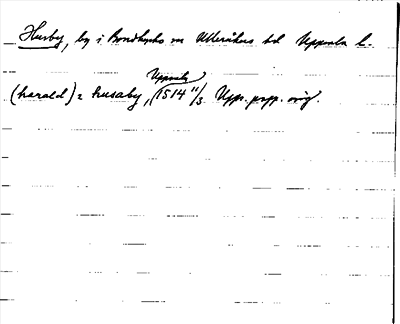 Husby, by i Bondkyrko sn Ulleråkers hd Uppsala l.
Uppsala
(harald) i husaby, 1514 11/3 Upps. papp. orig.